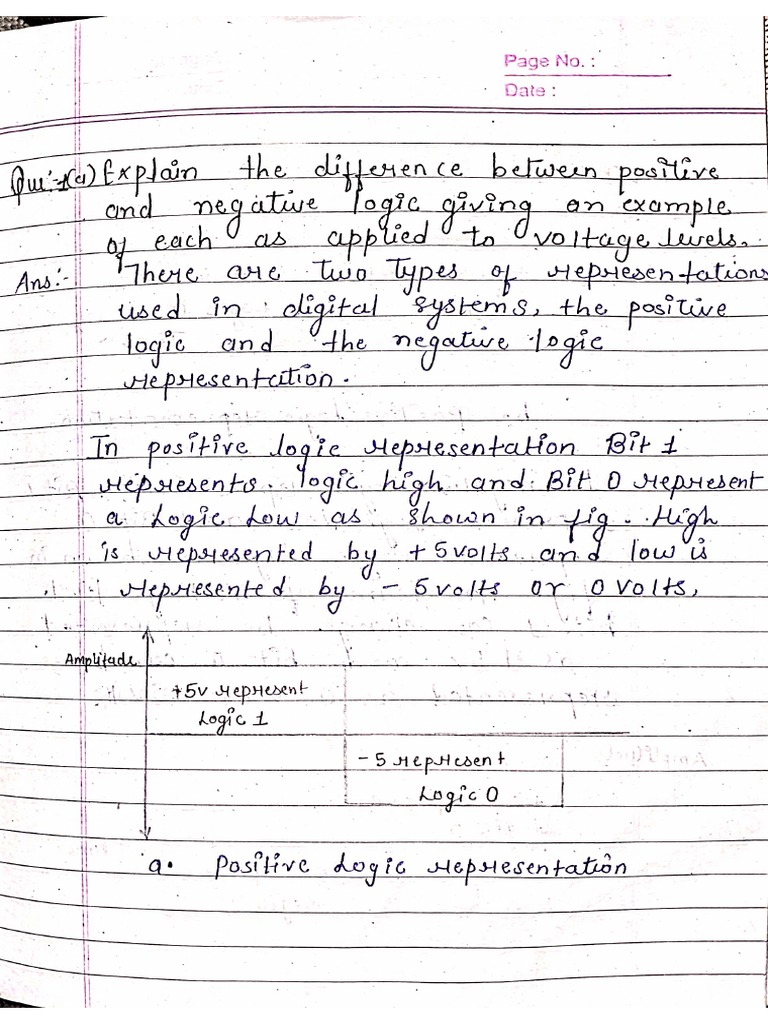 Page No. :
Date :
Que:-1(a) Explain the difference between positive
and negative logic giving an example
of each as applied to voltage levels.
Ans:- There are two types of representations
used in digital systems, the positive
logic and the negative logic
representation.
In positive logic representation Bit 1
represents. logic high and Bit 0 represent
a Logic Low as shown in fig. High
is represented by +5volts and low is
represented by - 5volts or 0 volts,
Amplitude
+5v represent
Logic 1
- 5 represent
Logic 0
a. Positive Logic representation